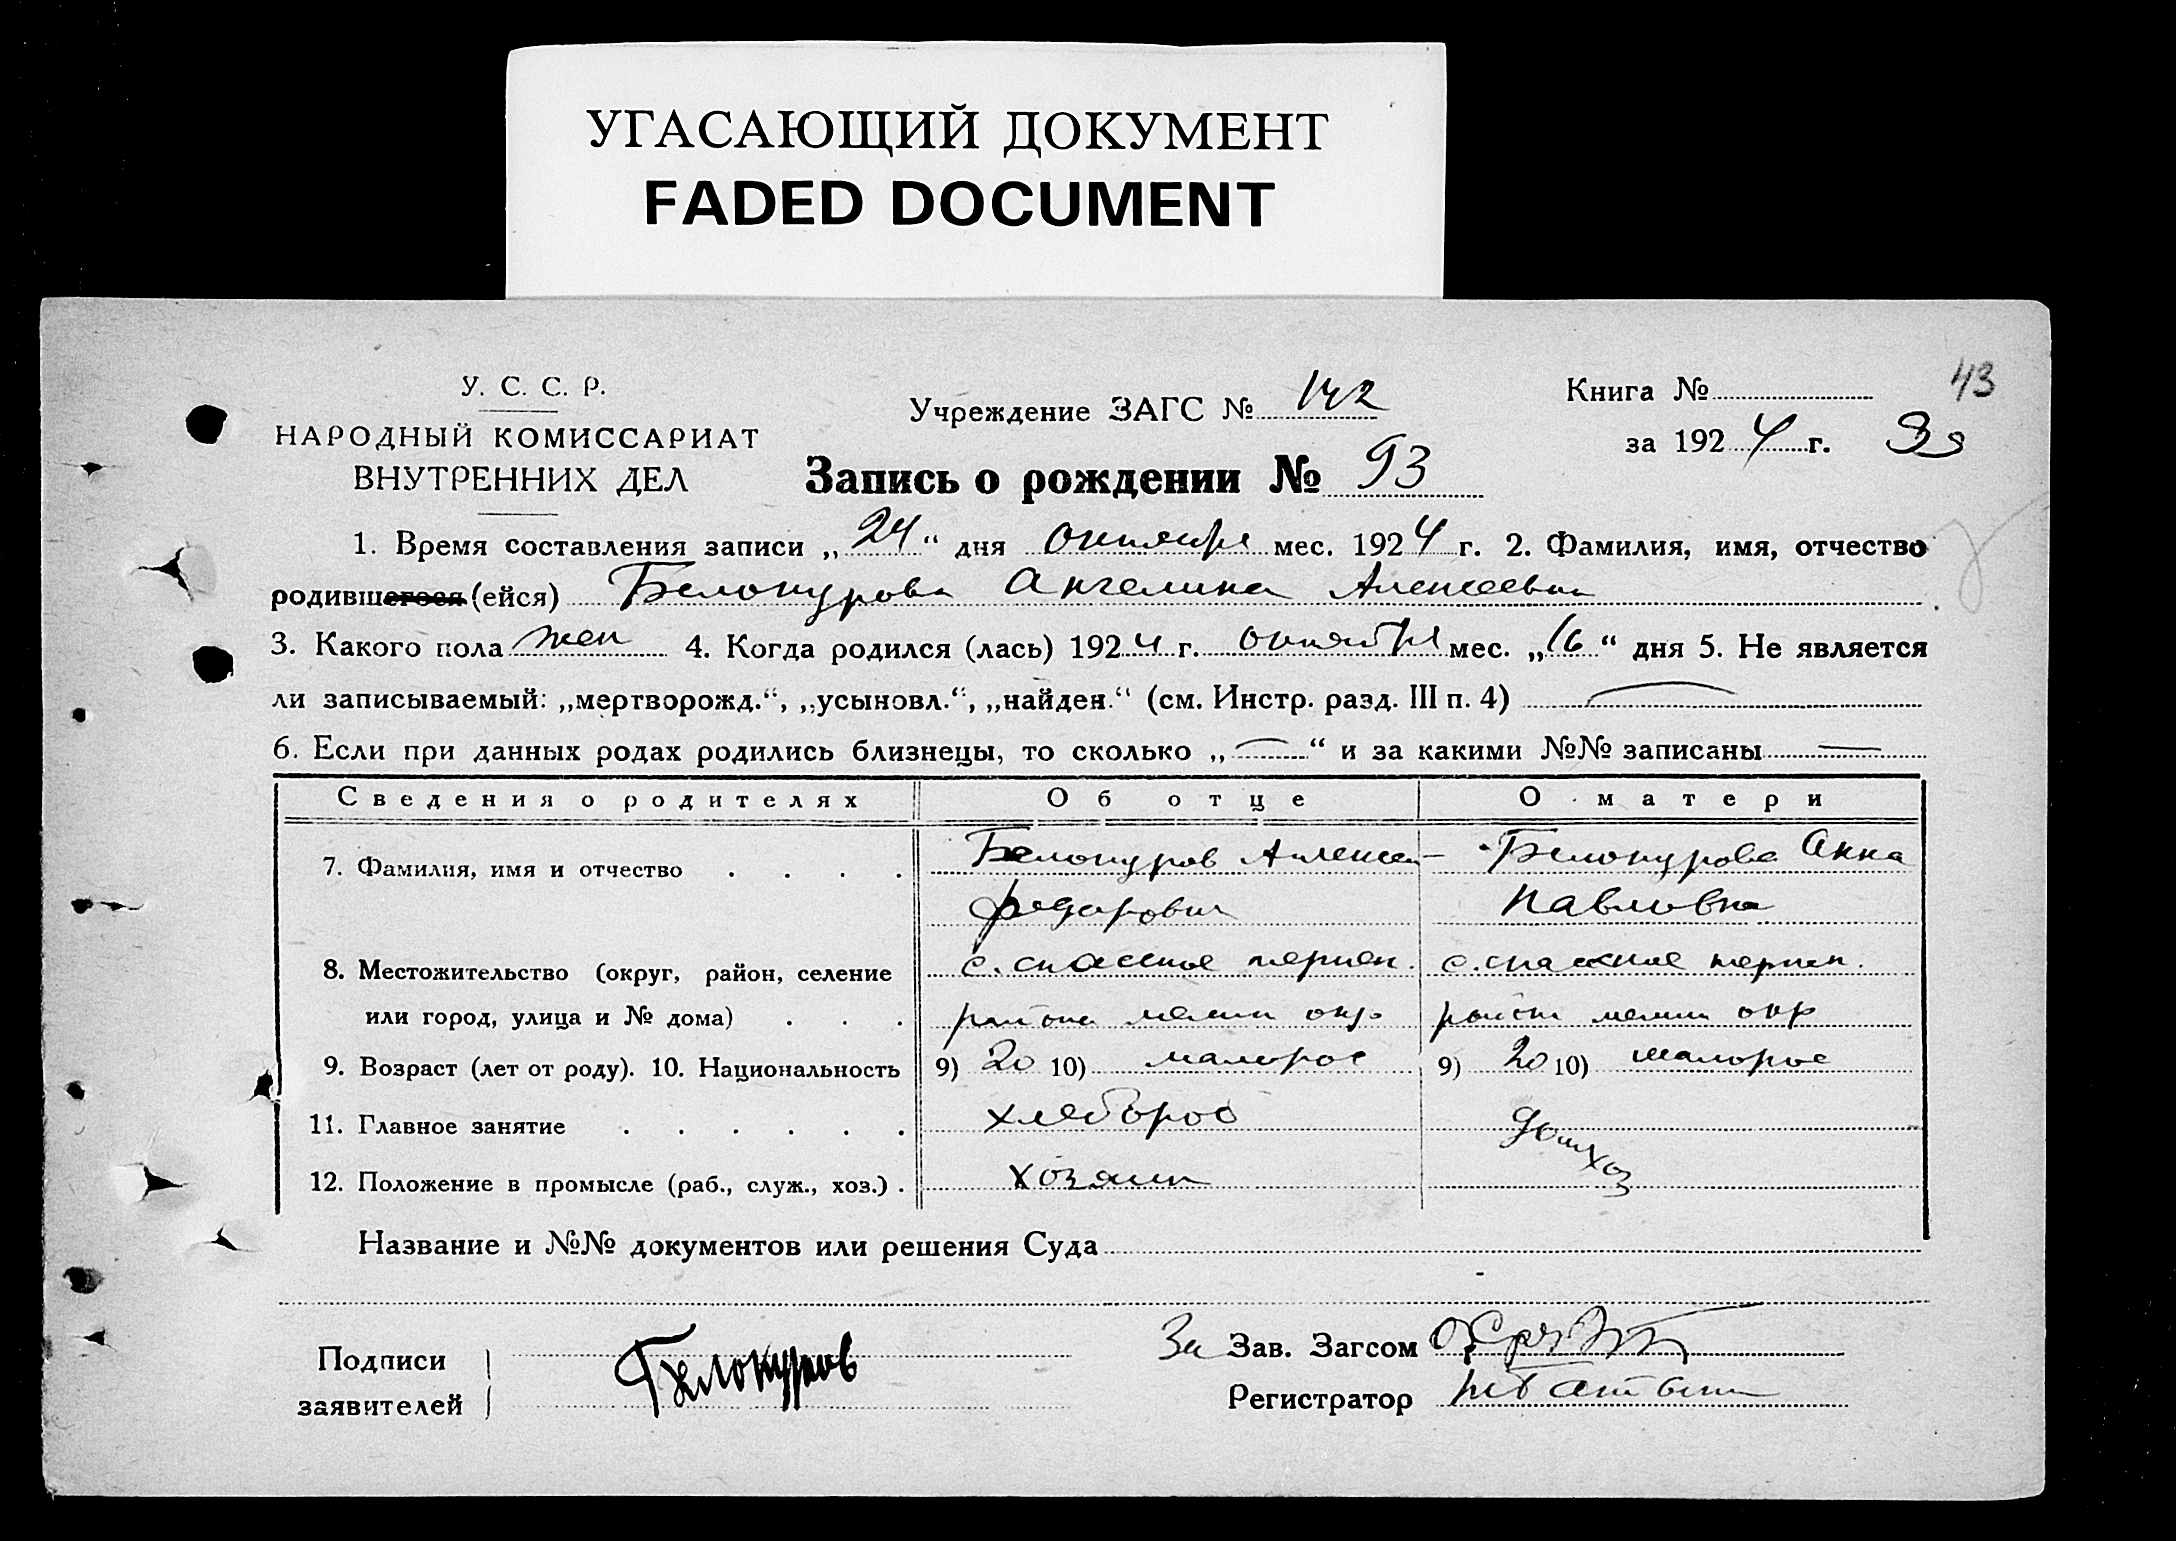 УГАСАЮЩИЙ ДОКУМЕНТ
FADED DOCUMENT
У. С. С. Р.
НАРОДНЫЙ КОМИССАРИАТ
ВНУТРЕННИХ ДЕЛ
Учреждение ЗАГС № 142
Книга №
43
за 1924 г.
Запись о рождении № 93
1. Время составления записи „24“ дня октября мес. 1924 г. 2. Фамилия, имя, отчество
родившегося (ейся) Белокурова Ангелина Алексеевна
3. Какого пола жен 4. Когда родился (лась) 1924 г. октября мес. „16“ дня 5. Не является
ли записываемый: „мертворожд.“, „усыновл.“, „найден.“ (см. Инстр. разд. III п. 4) —
6. Если при данных родах родились близнецы, то сколько „—“ и за какими №№ записаны —
Сведения о родителях Об отце О матери
7. Фамилия, имя и отчество . . . . Белокуров Алексей - Белокурова Анна
Федорович Павловна
8. Местожительство (округ, район, селение с. спасское терпен. с. спасское терпен.
или город, улица и № дома) . . . района мелит окр. район мелит окр
9. Возраст (лет от роду). 10. Национальность 9) 20 10) малорос 9) 20 10) малорос
11. Главное занятие . . . . . . хлебороб домхоз
12. Положение в промысле (раб., служ., хоз.) . хозяин
Название и №№ документов или решения Суда
Подписи
заявителей
Белокуров
За Зав. Загсом
Регистратор